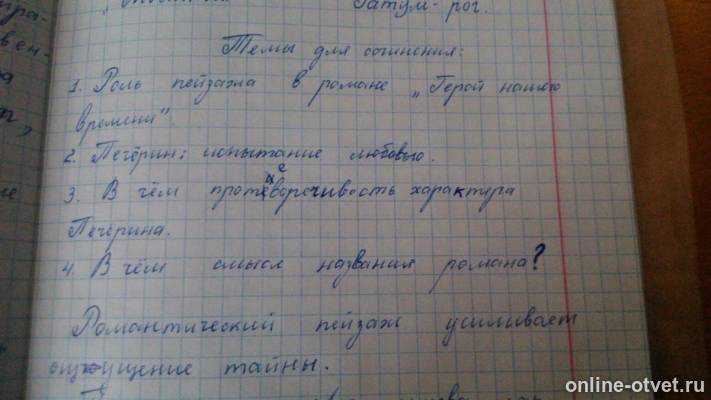 Татум-рог.
Темы для сочинения:
1. Роль пейзажа в романе „Герой нашего
времени"
2. Печёрин: испытание любовью.
3. В чём противоречивость характура
Печёрина.
4. В чём смысл названия романа?
Романтический пейзаж усиливает
ощущение тайны.
online-otvet.ru